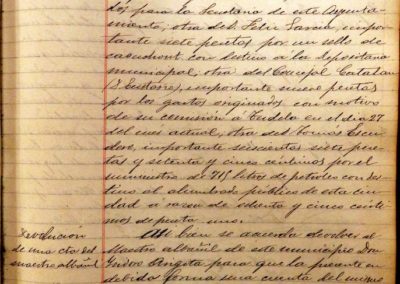 dos para la Secretaria de este Ayunta-
miento, otra de D. Felix Garcia, impor-
tante siete pesetas por un sello de
cautchout con destino a la depositaria
municipal, otra del Concejal Catalan
importante nueve pesetas
por los gastos originados con motivo
de su comision a Tudela en el dia 27
del mes actual, otra de Tomas Escu-
dero, importante seiscientas siete pese-
tas y setenta y cinco centimos por el
suministro de 715 litros de petroleo con des-
tino al alumbrado publico de esta ciu-
dad a razon de ochenta y cinco centi-
mos de peseta uno.
Devolución
de una cta del
maestro albañil
Asi bien se acuerda devolver al
Maestro albañil de este municipio Don
Isidoro para que la presente en
debida forma una cuenta del mismo